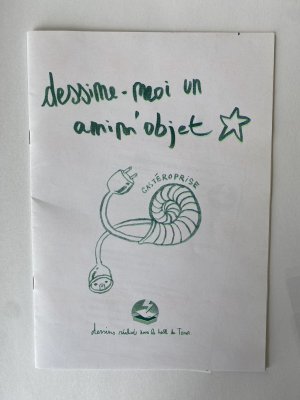 dessine-moi un
anim'objet
GASTÉROPRISE
dessins réalisés sous la halle de